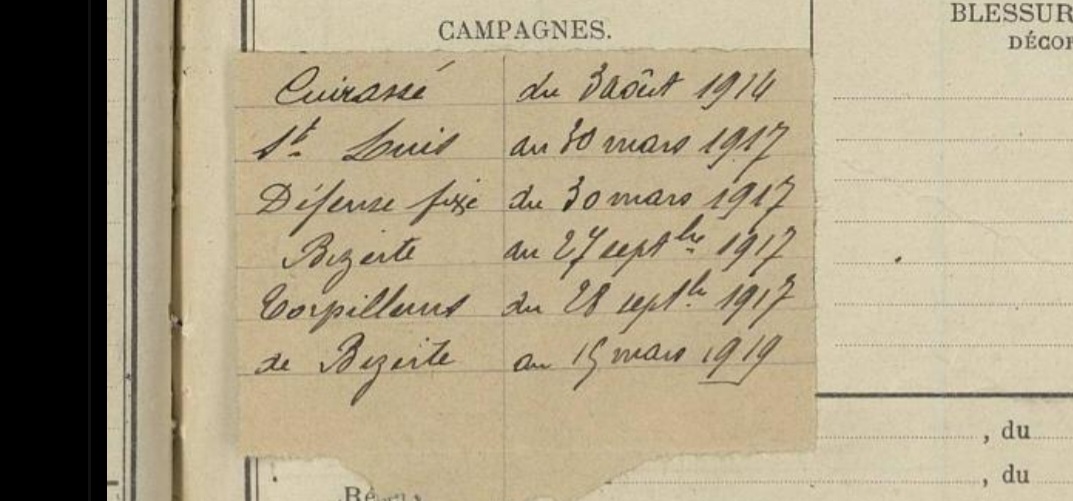 CAMPAGNES.
BLESSUR
DÉCOR
Cuirassé du 3 août 1914
St Louis au 30 mars 1917
Défense fixe du 30 mars 1917
Bizerte au 27 septbre 1917
Torpilleurs du 28 septb 1917
de Bizerte au 15 mars 1919
, du
, du